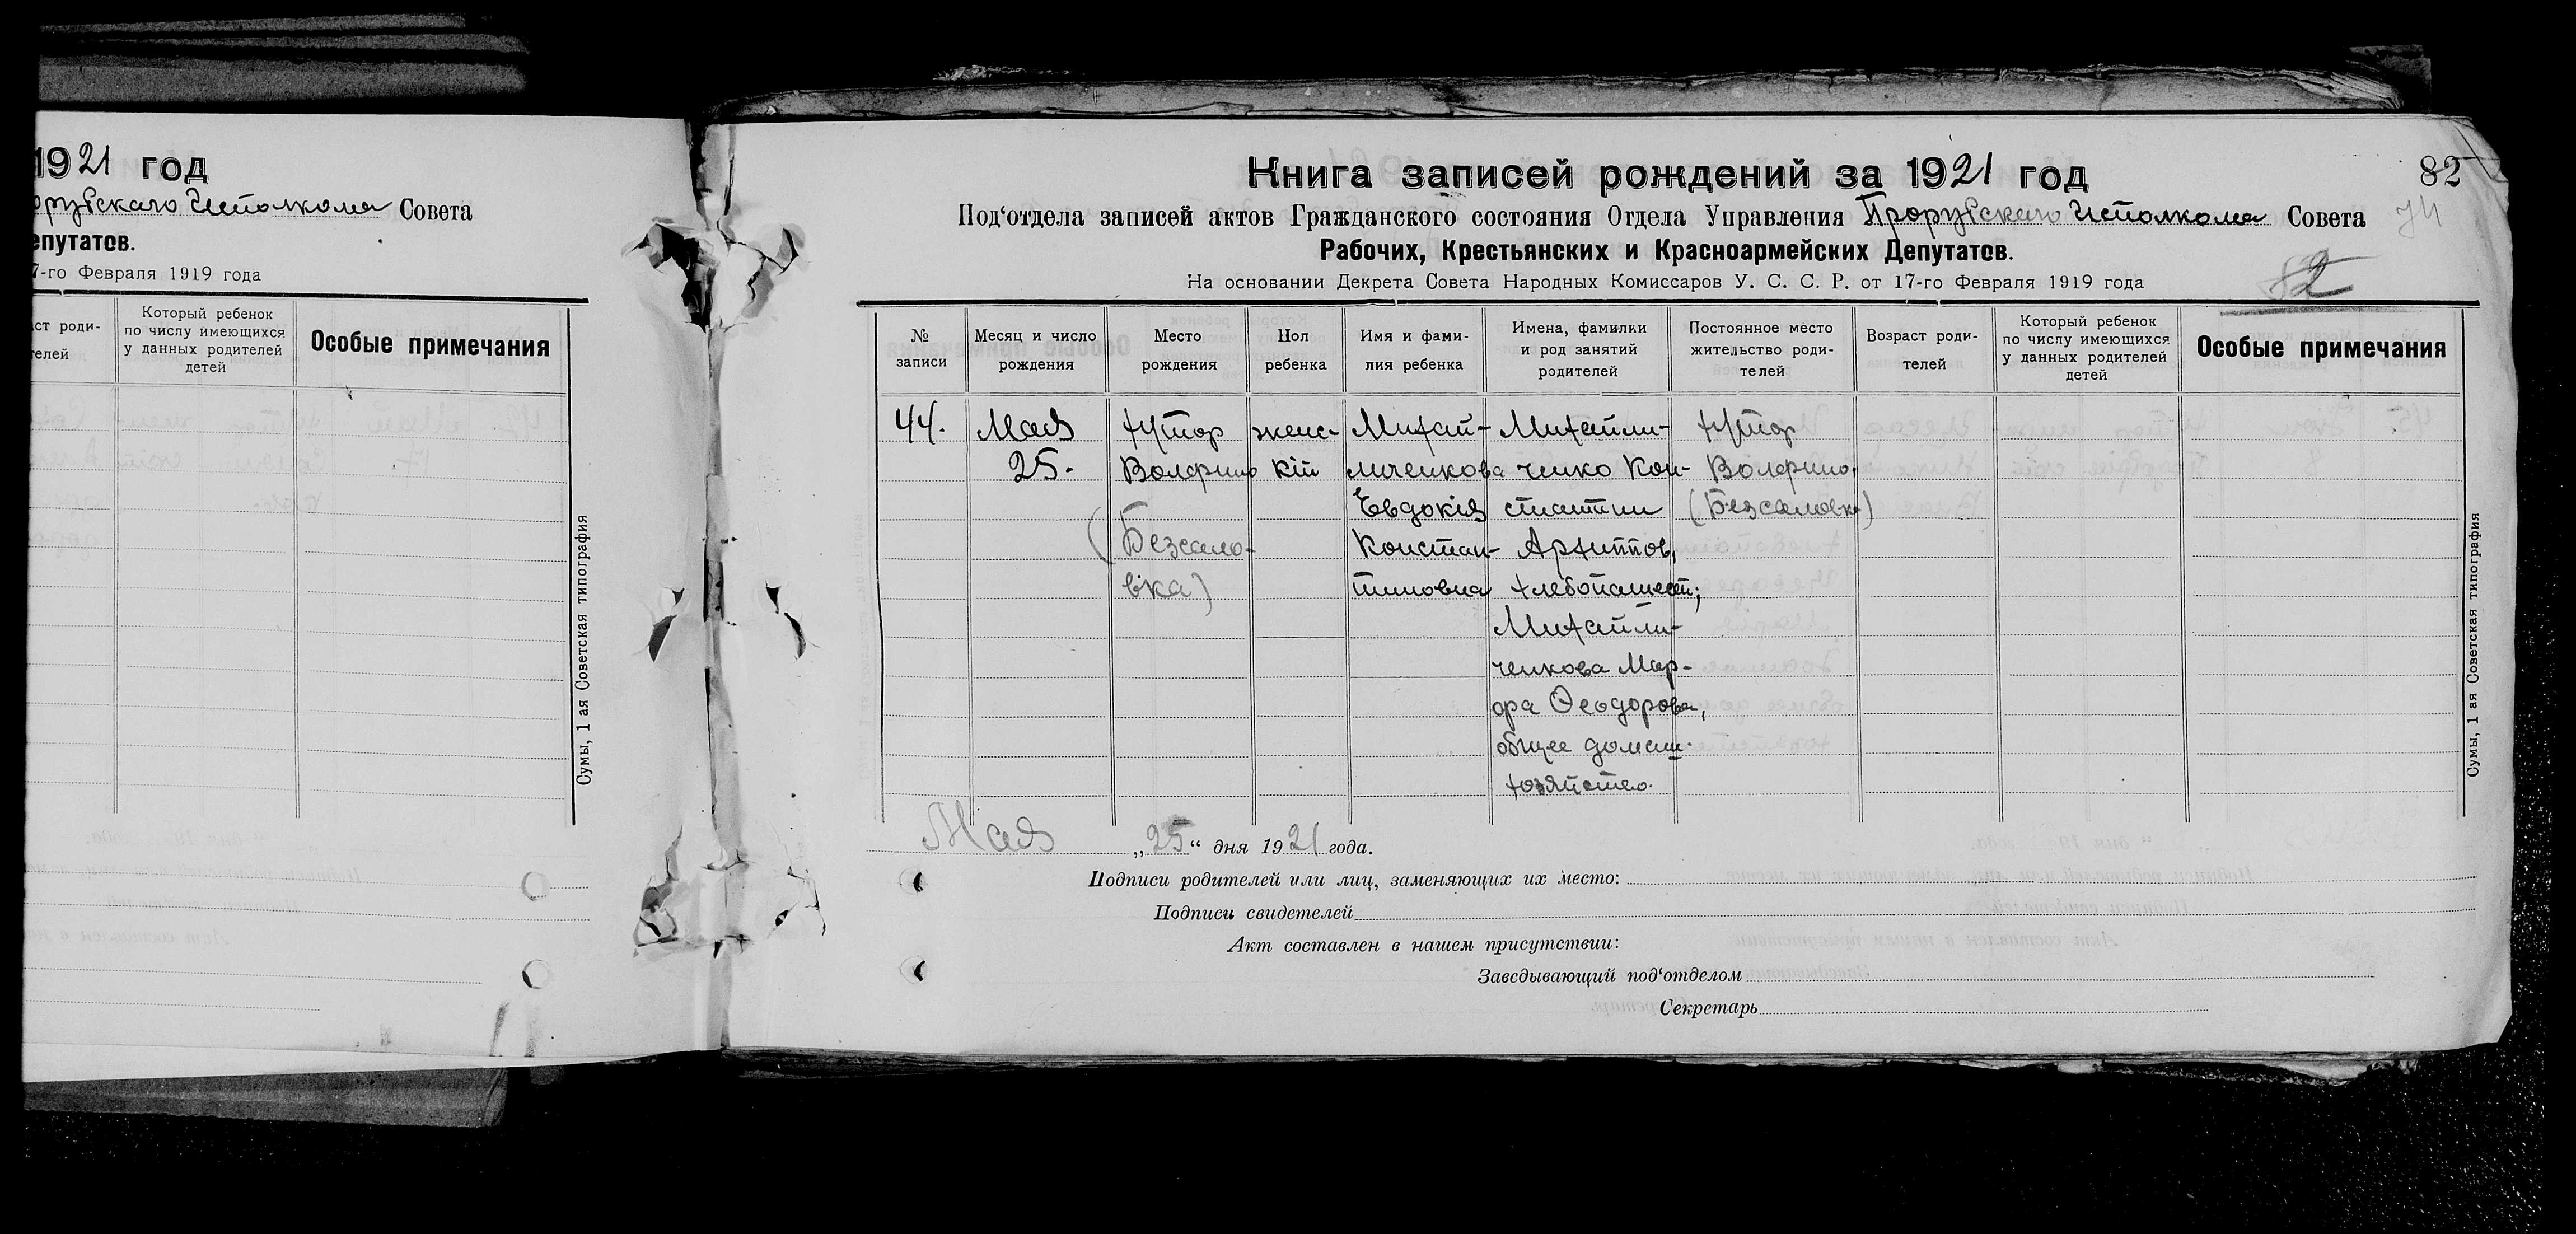 1921 год
Исполкома Совета
епутатов.
7-го Февраля 1919 года
ст роди-
телей
Который ребенок
по числу имеющихся
у данных родителей
детей
Особые примечания
Сумы, 1 ая Советская типография
Книга записей рождений за 1921 год
82
Под‘отдела записей актов Гражданского состояния Отдела Управления Прорубского Исполкома Совета
74
Рабочих, Крестьянских и Красноармейских Депутатов.
На основании Декрета Совета Народных Комиссаров У. С. С. Р. от 17-го Февраля 1919 года
82
№
записи
Месяц и число
рождения
Место
рождения
Пол
ребенка
Имя и фами-
лия ребенка
Имена, фамилии
и род занятий
родителей
Постоянное место
жительство роди-
телей
Возраст роди-
телей
Который ребенок
по числу имеющихся
у данных родителей
детей
Особые примечания
44.
Мая
25.
хутор
Волфино
(Безсало-
вка)
женс-
кій
Михай-
личенкова
Евдокія
Констан-
тиновна
Михайли-
ченко Кон-
стантин
Архиппов,
хлебопашест;
Михайли-
ченкова Мар-
фа Феодорова,
общее домаш.
хозяйство.
хутор
Волфино
(Безсаловка)
Мая „25“ дня 1921 года.
Подписи родителей или лиц, заменяющих их место:
Подписи свидетелей
Акт составлен в нашем присутствии:
Заведывающий под‘отделом
Секретарь
Сумы, 1 ая Советская типография